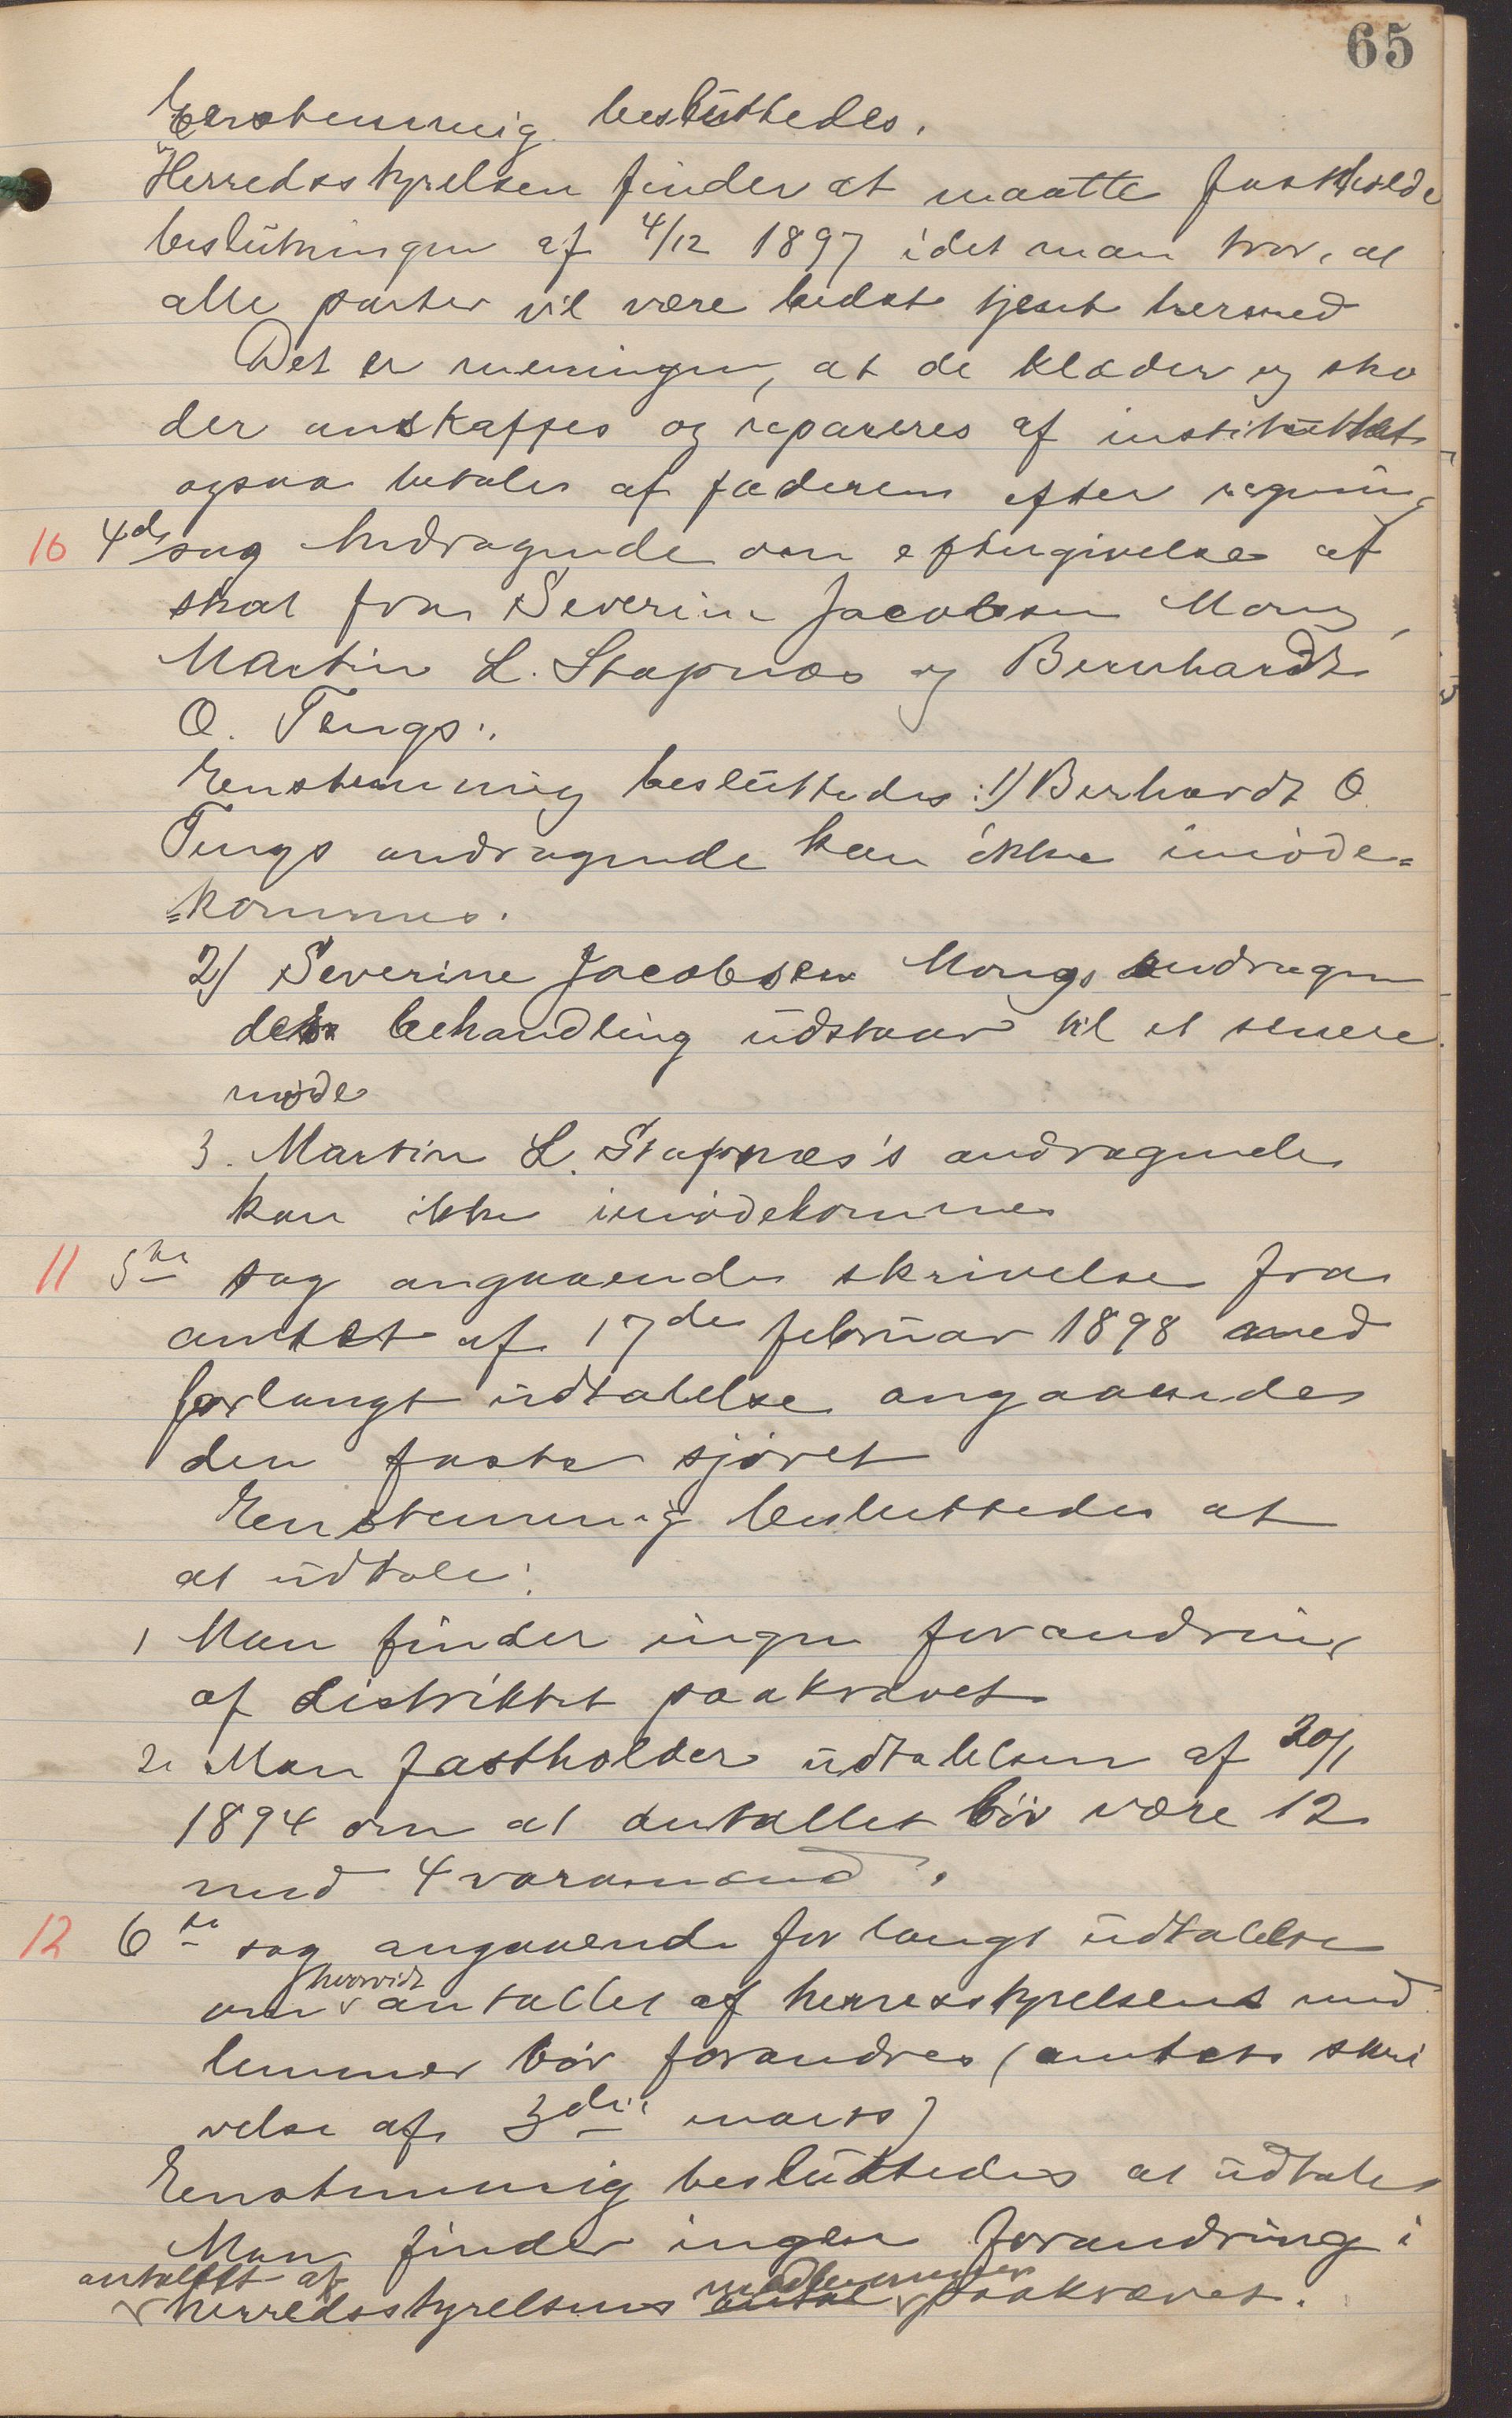 65
Eenstemmig besluttedes.
"Herredsstyrelsen finder at maatte fastholde
beslutningen af 4/12 1897 idet man tror, at
alle parter vil være bedst tjent hermed
Det er meningen, at de klæder og sko
der anskaffes og repareres af instituttet
ogsaa betales af faderen efter regning
10 4de sag Andragende om eftergivelse af
skat fra Severine Jacobsen Mong,
Martin L. Stapnæs og Bernhardt
O. Tengs.
Eenstemmig besluttedes: 1) Berhardt O.
Tengs andragende kan ikke imøde=
=kommes.
2) Severine Jacobsen Mongs andragen
des behandling udstaar til et senere
møde
3. Martin L. Stapnæs's andragende
kan ikke imødekommes
11 5te sag angaaende skrivelse fra
amtet af 17de februar 1898 med
forlangt udtalelse angaaende
den faste sjøret
Eenstemmig besluttedes at
at udtale:
1 Man finder ingen forandring
af distriktet paakrævet
2. Man fastholder udtalelsen af 20/1
1894 om at antallet bør være 12
med 4 varamænd.
12 6te sag angaaende forlangt udtalelse
om hvorvidt antallet af herresstyrelsens med
lemmer bør forandres (amtets skri
velse af 3die marts)
Eenstemmig besluttedes at udtale
Man finder ingen forandring i
antallet af herredsstyrelsens antal medlemmer paakrævet.